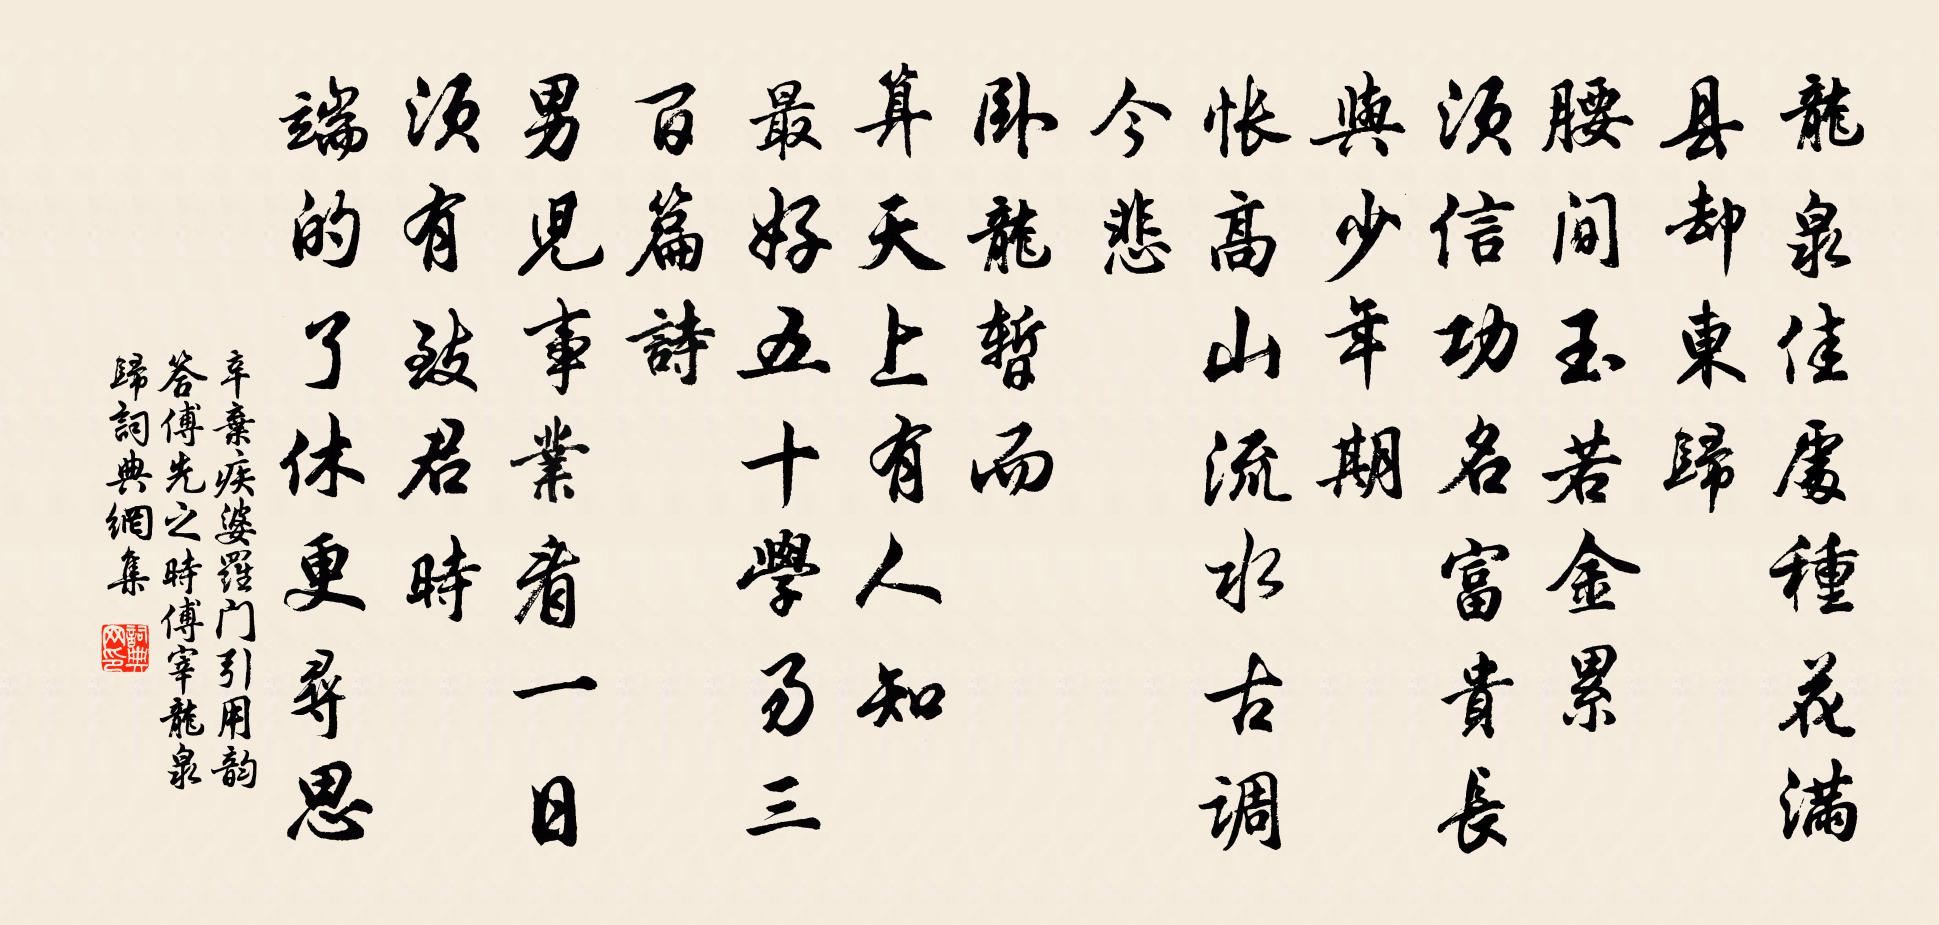 龍泉佳處種花滿
县却東歸
腰间玉若金累
须信功名富貴長
與少年期
怅高山流水古调
今悲
卧龍暫而
算天上有人知
最好五十學易三
百篇詩
男兒事業看一日
须有致君時
端的了休更尋思
辛棄疾婆羅门引用韵
答傅先之時傅宰龍泉
歸詞典網集
詞典网印